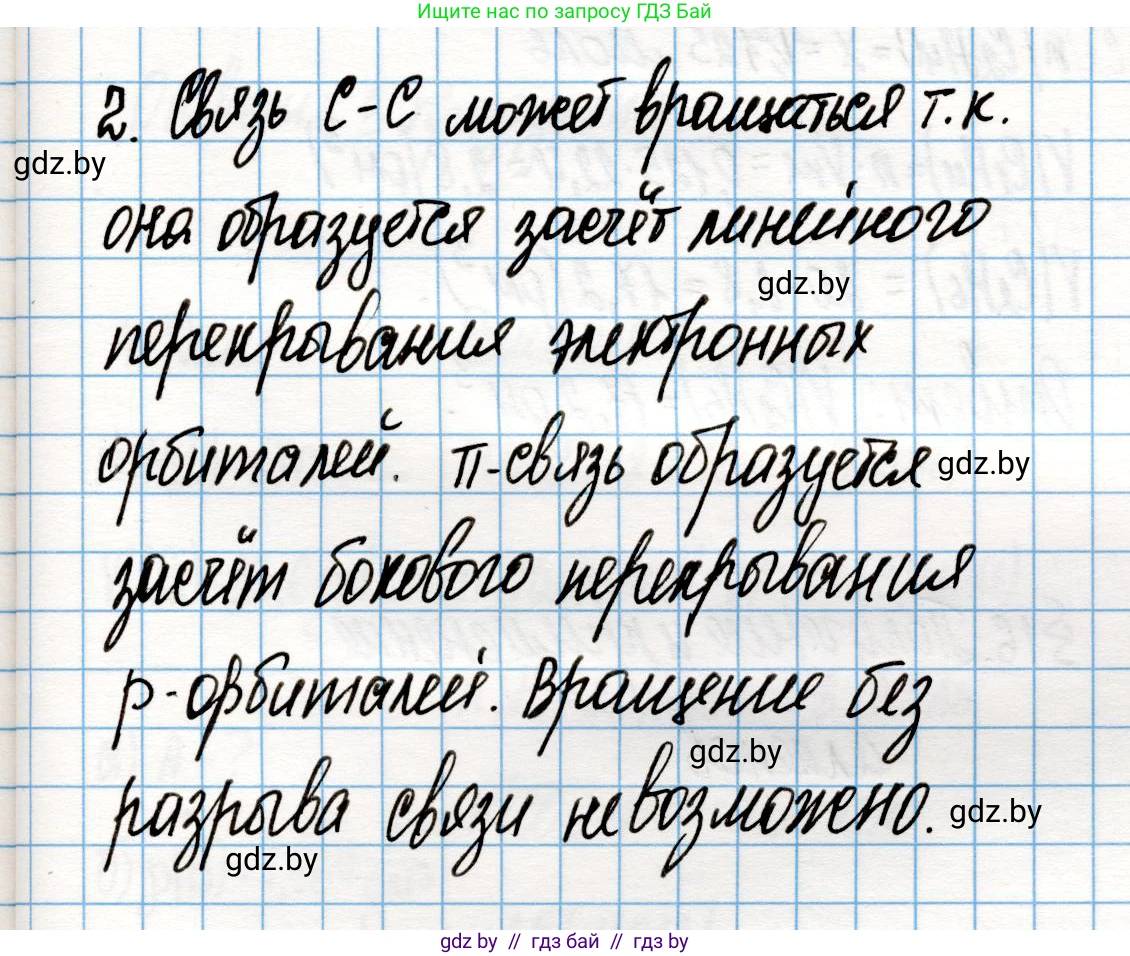 Ищите нас по запросу ГДЗ Бай
2. Связь С-С может вращаться т.к.
gdz.by
она образуется засчёт линейного
gdz.by
перекрывания электронных
орбиталей. π-связь образуется gdz.by
засчёт бокового перекрывания
р-орбиталей. Вращение без
gdz.by
разрыва связи невозможено. gdz.by
gdz.by
gdz by // гдз бай // гдз by